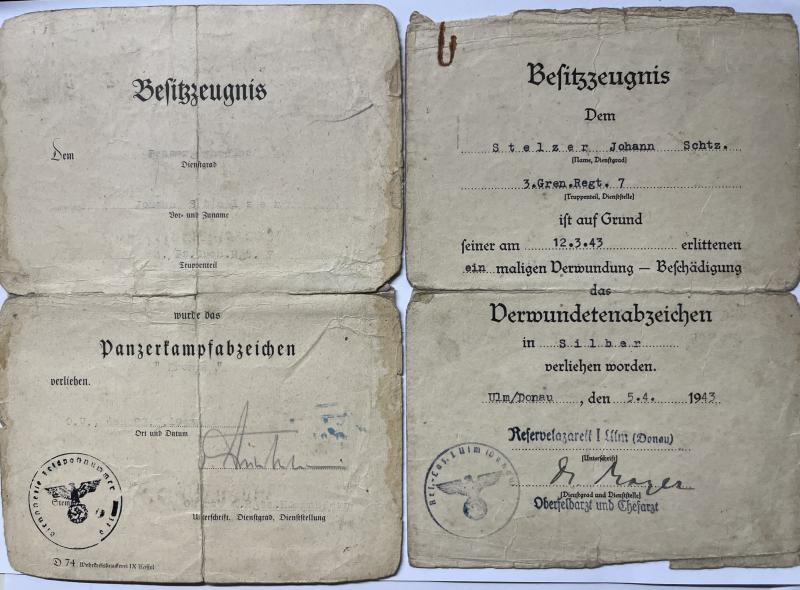 Besitzzeugnis
Dem
Dienstgrad
Johann
Vor- und Zuname
Truppenteil
wurde das
Panzerkampfabzeichen
verliehen.
Ort und Datum
Dienststelle Feldpostnummer
Unterschrift, Dienstgrad, Dienststellung
D 74 Wehrkreisdruckerei IX Kassel
Besitzzeugnis
Dem
Stelzer Johann Schtz.
(Name, Dienstgrad)
3.Gren.Regt. 7
(Truppenteil, Dienststelle)
ist auf Grund
seiner am 12.3.43 erlittenen
ein maligen Verwundung – Beschädigung
das
Verwundetenabzeichen
in Silber
verliehen worden.
Ulm/Donau, den 5.4. 1943
Reservelazarett I Ulm (Donau)
(Unterschrift)
Dr.
(Dienstgrad und Dienststelle)
Oberfeldarzt und Chefarzt